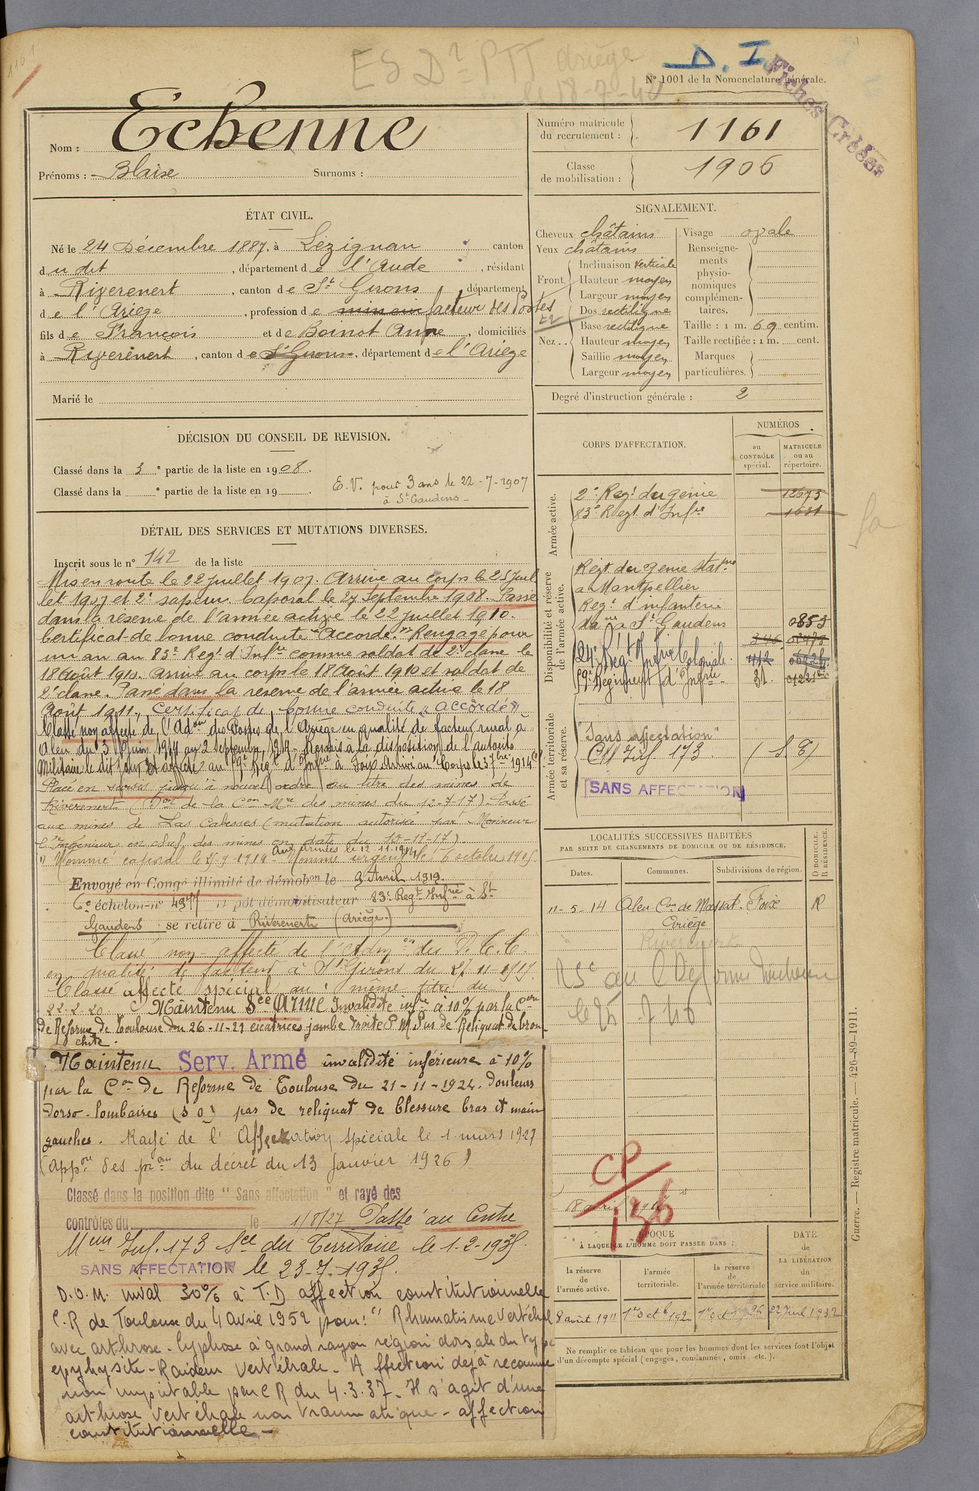 ES Dr PTT Ariège
D. I
N° 1001 de la Nomenclature générale.
Fiches Créées
Nom : Echenne
Prénoms : Blaise Surnoms :
Numéro matricule du recrutement : 1161
Classe de mobilisation : 1906
ÉTAT CIVIL.
Né le 24 Décembre 1887, à Lézignan canton
du dit, département de l'Aude, résidant
à Riverenert, canton de St Girons, département
de l'Ariège, profession de facteur des Postes
fils de François et de Boinot Anne, domiciliés
à Riverenert, canton de St Girons, département de l'Ariège
Marié le
SIGNALEMENT.
Cheveux châtains
Yeux châtains
Front Inclinaison verticale
Hauteur moyen
Largeur moyen
Nez Dos rectiligne
Base rectiligne
Hauteur moyen
Saillie moyen
Largeur moyen
Visage ovale
Renseignements physionomiques complémentaires.
Taille : 1 m. 69 centim.
Taille rectifiée : 1 m. cent.
Marques particulières.
Degré d'instruction générale : 2
DÉCISION DU CONSEIL DE REVISION.
Classé dans la 3e partie de la liste en 1908.
Classé dans la e partie de la liste en 19
E.V. pour 3 ans le 22-7-1907
à St Gaudens
DÉTAIL DES SERVICES ET MUTATIONS DIVERSES.
Inscrit sous le n° 142 de la liste
Mis en route le 22 juillet 1907. Arrivé au corps le 23 Juil
let 1907 et 2e sapeur. Caporal le 27 Septembre 1908. Passé
dans la réserve de l'armée active le 22 juillet 1910.
Certificat de bonne conduite "Accordé". Rengagé pour
un an au 83e Regt d'Infrie comme soldat de 2e classe le
18 Août 1910. Arrivé au corps le 18 Août 1910 et soldat de
2e classe. Passé dans la réserve de l'armée active le 18
Août 1911. Certificat de bonne conduite "accordé"
Classé non affecté de l'Adon des Postes de l'Ariège en qualité de facteur rural à
Aleu du 3 Juin 1914 au 2 Septembre 1914. Remis à la disposition de l'autorité
Militaire le dit jour et affecté au 59e Regt d'Infrie à Foix. Arrivé au Corps le 3 7bre 1914
Placé en sursis jusqu'à nouvel ordre au titre des mines de
Riverenert (Don de la Con Mre des mines du 12-7-17) Passé
aux mines de Las Cabesses (mutation autorisée par Monsieur
l'Ingénieur en chef des mines en date du 10-12-17)
Aux armées le
Nommé caporal le Nommé sergent le 6 octobre 1915.
Envoyé en Congé illimité de démobon le 3 Avril 1919
échelon n° 4977 dépôt démobilisateur 83e Regt Infrie à St
Gaudens se retire à Riverenert (Ariège)
Classé non affecté de l'Admon des P.T.T.
en qualité de facteur à St Girons du 27-11-1915
Classé affecté spécial au même titre du
22-2-20 Maintenu Sce ARMÉ Invalidité infre à 10% par la Con
de Réforme de Toulouse du 26-11-21 cicatrices jambe droite Pas de Reliquat de bron
chite.
Maintenu Serv. Armé invalidité inférieure à 10%
par la Con de Réforme de Toulouse du 21-11-1924. Douleurs
dorso-lombaires pas de reliquat de blessure bras et main
gauches. Rayé de l'Affectation Spéciale le 1 mars 1927
(Appon des pron du décret du 13 Janvier 1926)
Classé dans la position dite " Sans affectation " et rayé des
contrôles du le 1/8/27 Passé au Centre
Mem Inf. 173 Sce du Territoire le 1-2-1935
SANS AFFECTATION le 23-7-1935.
D.O.M. inval 30% à T.D affection constitutionnelle
C.R de Toulouse du 4 avril 1952 pour : " Rhumatisme vertébral
avec arthrose - Cyphose à grand rayon région dorsale du type
epiphysite - Raideur vertébrale - Affection déjà reconnue
non imputable par CR du 4.3.37 - Il s'agit d'une
arthrose vertébrale non traumatique - affection
constitutionnelle -
CORPS D'AFFECTATION.
NUMÉROS
au CONTRÔLE spécial.
MATRICULE ou au répertoire.
Armée active.
2e Regt du génie 12693
83e Regt d'Infrie
Disponibilité et réserve de l'armée active.
Regt du génie
à Montpellier
Regt d'infanterie
à St Gaudens
24e Regt Infrie Coloniale.
59e Régiment d'Infrie
Armée territoriale et sa réserve.
"Sans affectation"
CM Inf. 173
SANS AFFECTATION
LOCALITÉS SUCCESSIVES HABITÉES
PAR SUITE DE CHANGEMENTS DE DOMICILE OU DE RÉSIDENCE.
Dates. Communes. Subdivisions de région. D. DOMICILE. R. RÉSIDENCE.
11-5-14 Aleu Con de Massat Foix R
Ariège
Riverenert
CP
136
ÉPOQUE
À LAQUELLE L'HOMME DOIT PASSER DANS :
la réserve de l'armée active. l'armée territoriale. la réserve de l'armée territoriale
DATE de LA LIBÉRATION du service militaire.
Ne remplir ce tableau que pour les hommes dont les services font l'objet
d'un décompte spécial (engagés, condamnés, omis, etc.).
Guerre. — Registre matricule. — 426-89-1911.